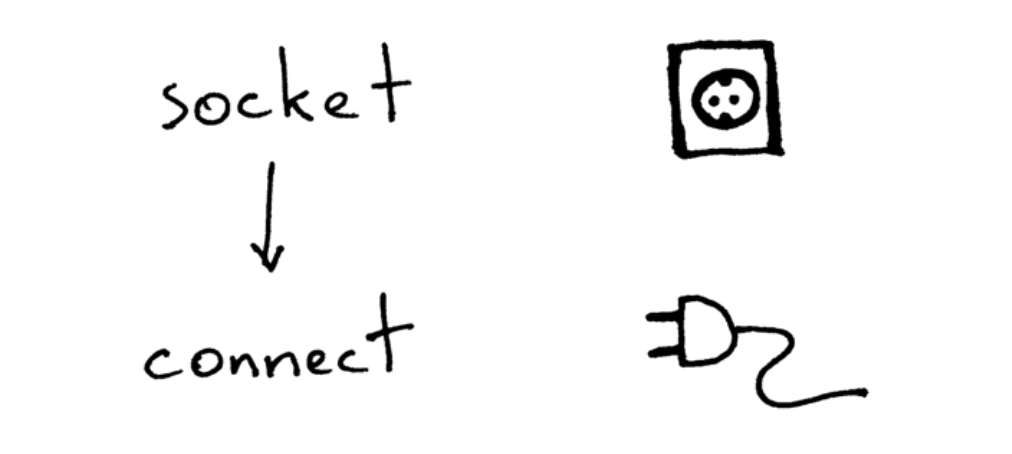 socket
connect